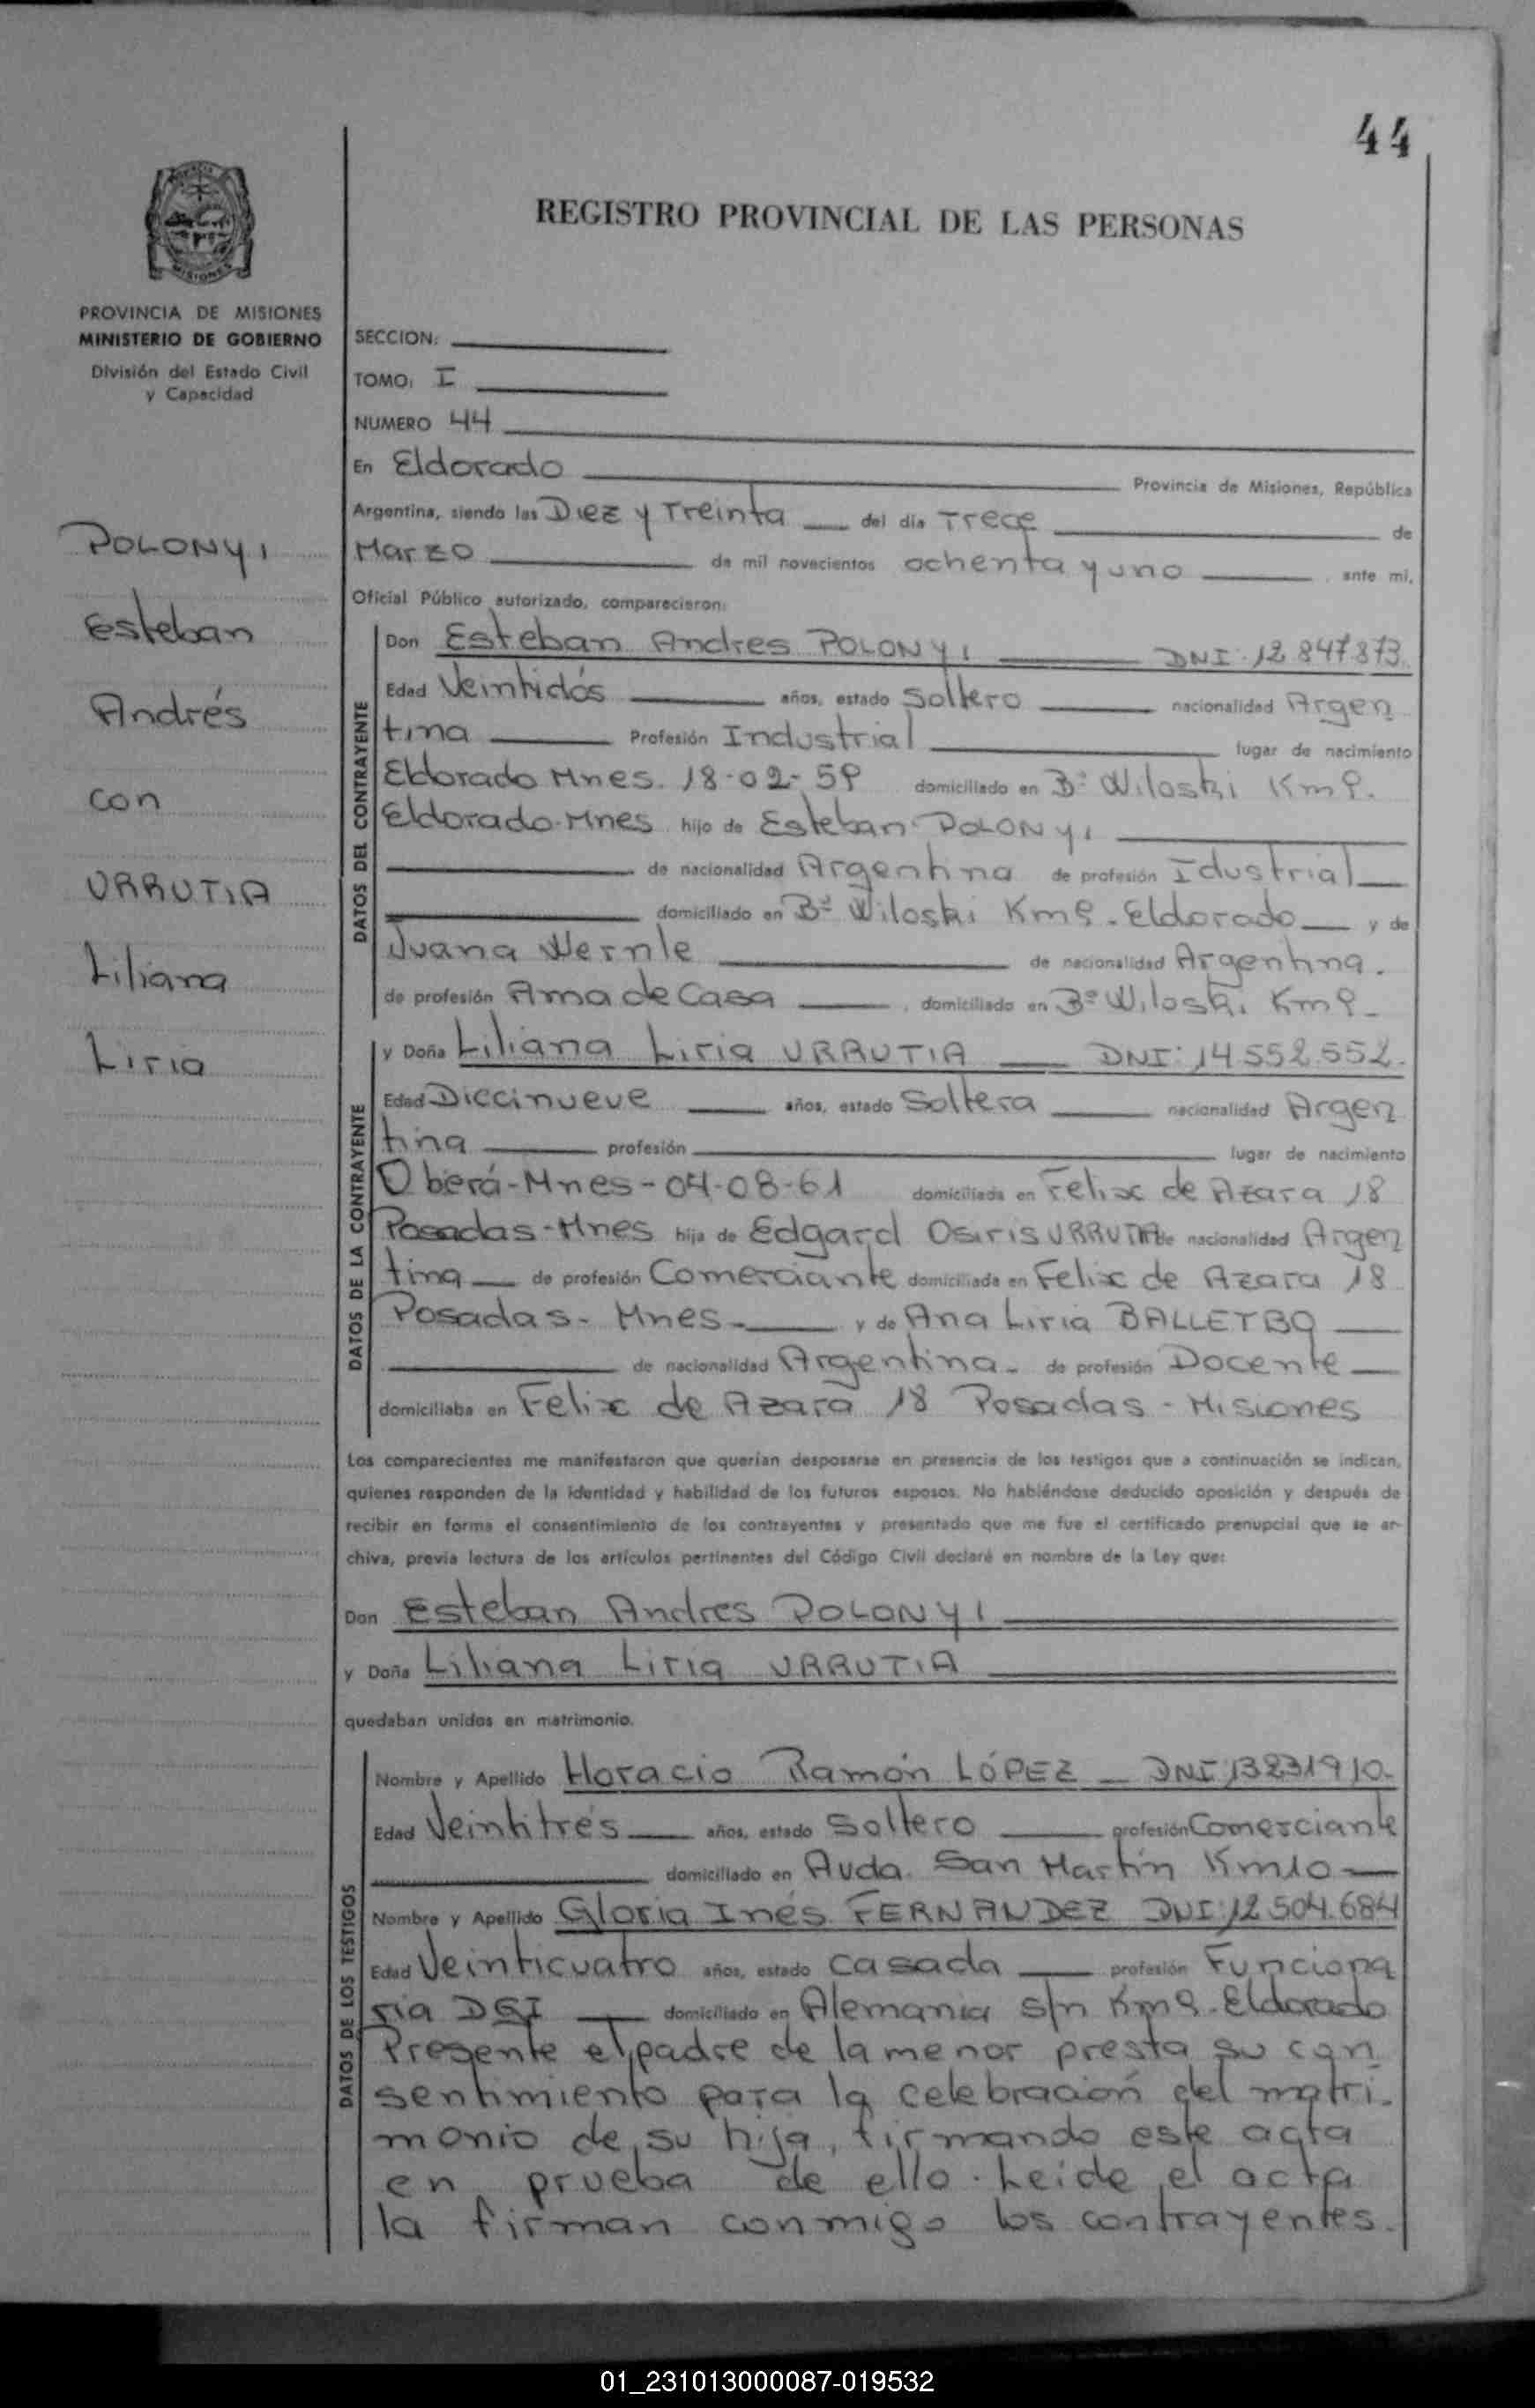 44
REGISTRO PROVINCIAL DE LAS PERSONAS
MISIONES
PROVINCIA DE MISIONES
MINISTERIO DE GOBIERNO
División del Estado Civil
y Capacidad
POLONYI
Esteban
Andrés
con
URRUTIA
Liliana
Liria
SECCION:
TOMO: I
NUMERO 44
En Eldorado Provincia de Misiones, República
Argentina, siendo las Diez y Treinta del día Trece de
Marzo de mil novecientos ochenta y uno ante mi,
Oficial Público autorizado, comparecieron:
DATOS DEL CONTRAYENTE
Don Esteban Andres POLONYI DNI: 12.847.873.
Edad Veintidós años, estado Soltero nacionalidad Argen
tina Profesión Industrial lugar de nacimiento
Eldorado Mnes. 18-02-59 domiciliado en Bº Wiloski Km 9.
Eldorado-Mnes hijo de Esteban POLONYI
de nacionalidad Argentina de profesión Idustrial
domiciliado en Bº Wiloski Km 9. Eldorado y de
Juana Wernle de nacionalidad Argentina.
de profesión Ama de Casa, domiciliado en Bº Wiloski Km 9.
DATOS DE LA CONTRAYENTE
y Doña Liliana Liria URRUTIA DNI: 14.552.552.
Edad Diecinueve años, estado Soltera nacionalidad Argen
tina profesión lugar de nacimiento
Oberá-Mnes-04-08-61 domiciliada en Felix de Azara 18
Posadas-Mnes hija de Edgard Osiris URRUTIA de nacionalidad Argen
tina de profesión Comerciante domiciliada en Felix de Azara 18
Posadas-Mnes. y de Ana Liria BALLETBO
de nacionalidad Argentina. de profesión Docente
domiciliaba en Felix de Azara 18 Posadas-Misiones
Los comparecientes me manifestaron que querían desposarse en presencia de los testigos que a continuación se indican,
quienes responden de la identidad y habilidad de los futuros esposos. No habiéndose deducido oposición y después de
recibir en forma el consentimiento de los contrayentes y presentado que me fue el certificado prenupcial que se ar-
chiva, previa lectura de los artículos pertinentes del Código Civil declaré en nombre de la Ley que:
Don Esteban Andres POLONYI
y Doña Liliana Liria URRUTIA
quedaban unidos en matrimonio.
DATOS DE LOS TESTIGOS
Nombre y Apellido Horacio Ramón LÓPEZ DNI 13231910.
Edad Veintitrés años, estado Soltero profesión Comerciante
domiciliado en Avda. San Martín Km10
Nombre y Apellido Gloria Inés FERNANDEZ DNI: 12.504.684
Edad Veinticuatro años, estado Casada profesión Funciona
ria DGI domiciliado en Alemania s/n Km 9. Eldorado
Presente el padre de la menor presta su con
sentimiento para la celebración del matri-
monio de su hija, firmando este acta
en prueba de ello. Leide el acta
la firman conmigo los contrayentes.
01_231013000087-019532